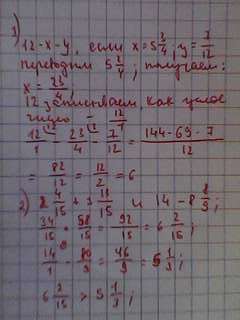 1)
12-x-y, если x=5 3/4; y=7/12
переводим 5 3/4; получаем:
x=23/4;
12 записываем, как целое
число - 12/1
12/1 - 23/4 - 7/12 = 144-69-7/12
= 82/12 = 12/2 = 6
2) 2 4/15 + 3 13/15 и 14-8 8/9;
34/15 + 58/15 = 92/15 = 6 2/15;
14/1 - 80/9 = 46/9 = 5 1/9;
6 2/15 > 5 1/9;